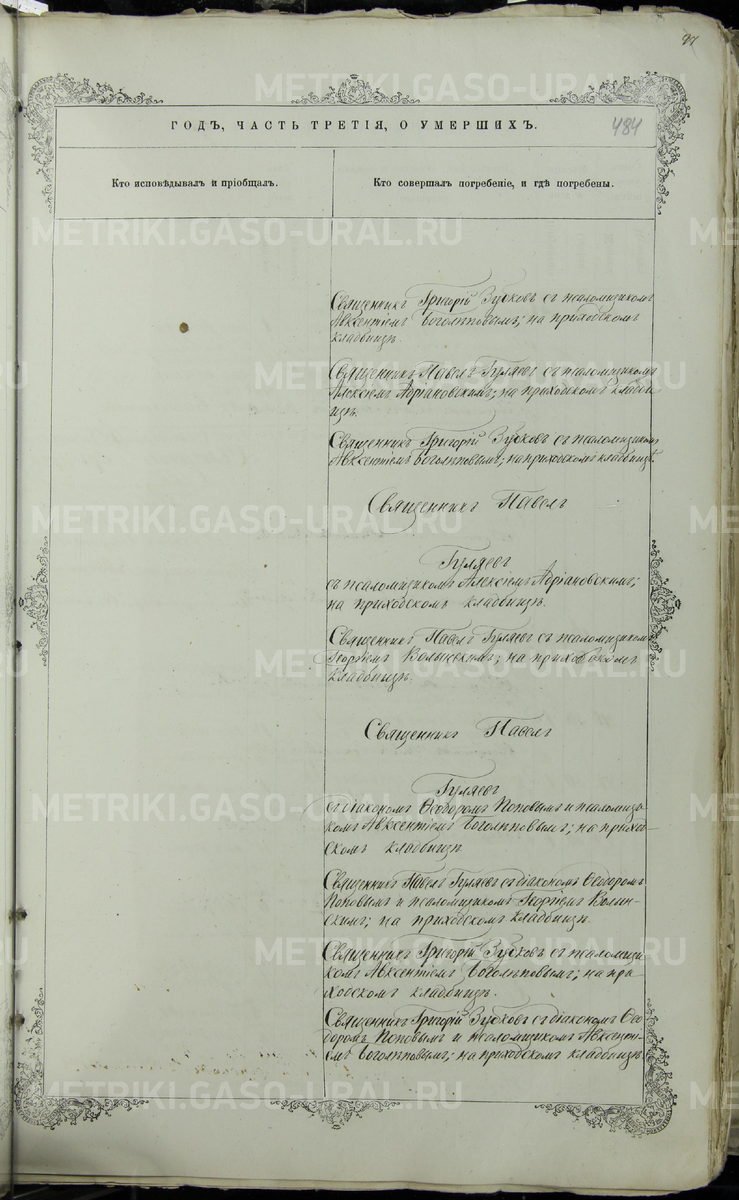 97
ГОДЪ, ЧАСТЬ ТРЕТІЯ, О УМЕРШИХЪ.
484
Кто исповѣдывалъ и пріобщалъ.
Кто совершалъ погребеніе, и гдѣ погребены.
Священникъ Григорій Зубковъ съ псаломщикомъ
Авксентіемъ Боголѣповымъ; на приходскомъ
кладбищѣ.
Священникъ Павелъ Гуляевъ съ псаломщикомъ
Алексіемъ Адріановскимъ; на приходскомъ кладби
щѣ.
Священникъ Григорій Зубковъ съ псаломщикомъ
Авксентіемъ Боголѣповымъ; на приходскомъ кладбищѣ.
Священникъ Павелъ
Гуляевъ
съ псаломщикомъ Алексіемъ Адріановскимъ;
на приходскомъ кладбищѣ.
Священникъ Павелъ Гуляевъ съ псаломщикомъ
Георгіемъ Волынскимъ; на приходскомъ
кладбищѣ.
Священникъ Павелъ
Гуляевъ
съ діакономъ Ѳеодоромъ Поповымъ и псаломщи-
комъ Авксентіемъ Боголѣповымъ; на приход-
скомъ кладбищѣ.
Священникъ Павелъ Гуляевъ съ діакономъ Ѳеодоромъ
Поповымъ и псаломщикомъ Георгіемъ Волын-
скимъ; на приходскомъ кладбищѣ.
Священникъ Григорій Зубковъ съ псаломщи-
комъ Авксентіемъ Боголѣповымъ; на при-
ходскомъ кладбищѣ.
Священникъ Григорій Зубковъ съ діакономъ Ѳео-
доромъ Поповымъ и псаломщикомъ Авксенті-
емъ Боголѣповымъ; на приходскомъ кладбищѣ.
METRIKI.GASO-URAL.RU